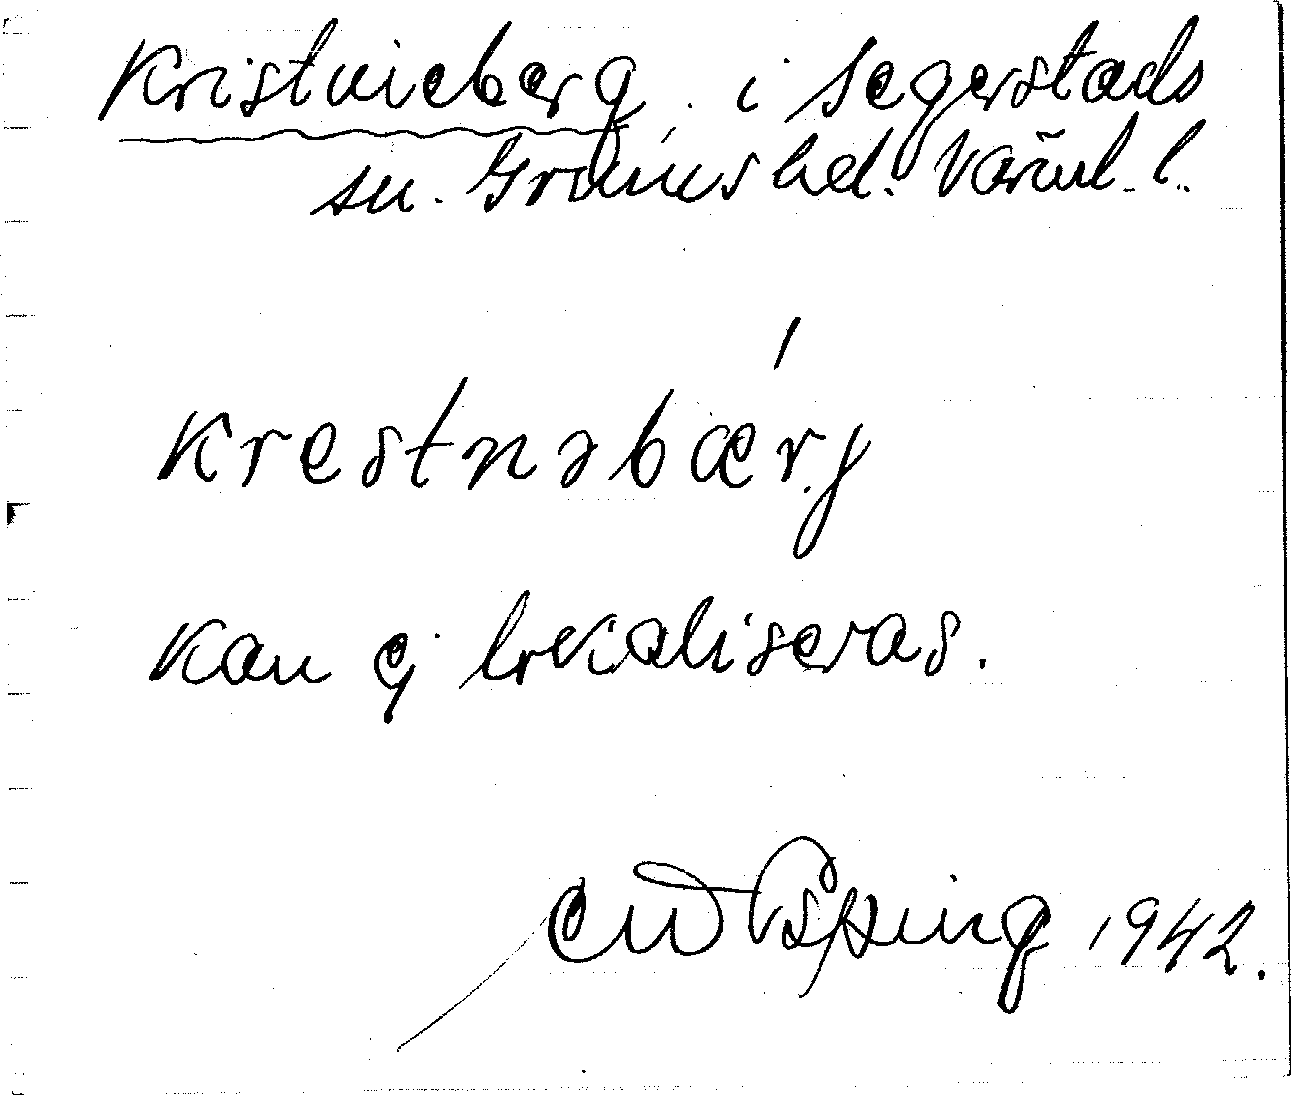 Kristineberg i Segerstads
sn. Grums hd. Värml. l.
krestnəbær.j
Kan ej lokaliseras.
1942.